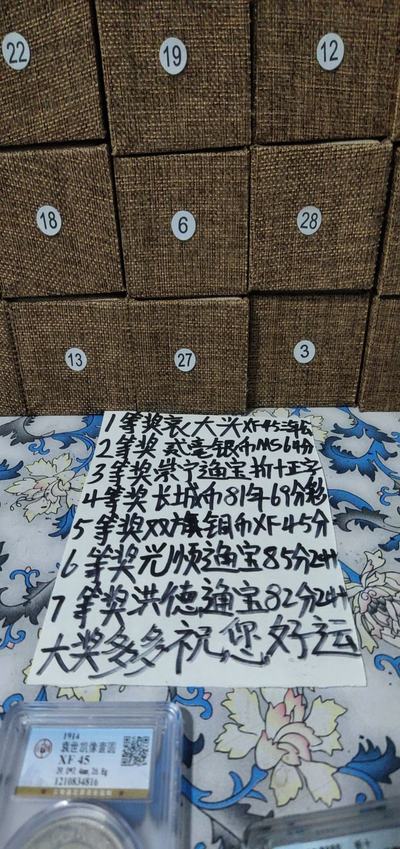 22
19
12
18
6
28
13
27
3
1等奖袁大头XF45三年
2等奖 贰毫银币MS64分
3等奖崇宁通宝折十正字
4等奖长城币81年69分彩
5等奖双旗铜币XF45分
6等奖光顺通宝85分24H
7等奖洪德通宝82分24H
大奖多多祝您好运
1914
袁世凯像壹圆
XF 45
1210834816